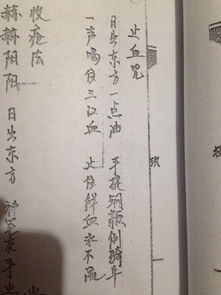 止血咒
日出东方一点油 手提钢鞭倒骑牛
一声喝住三江血 止住鲜血永不流
收疮法
赫赫阳阳 日出东方